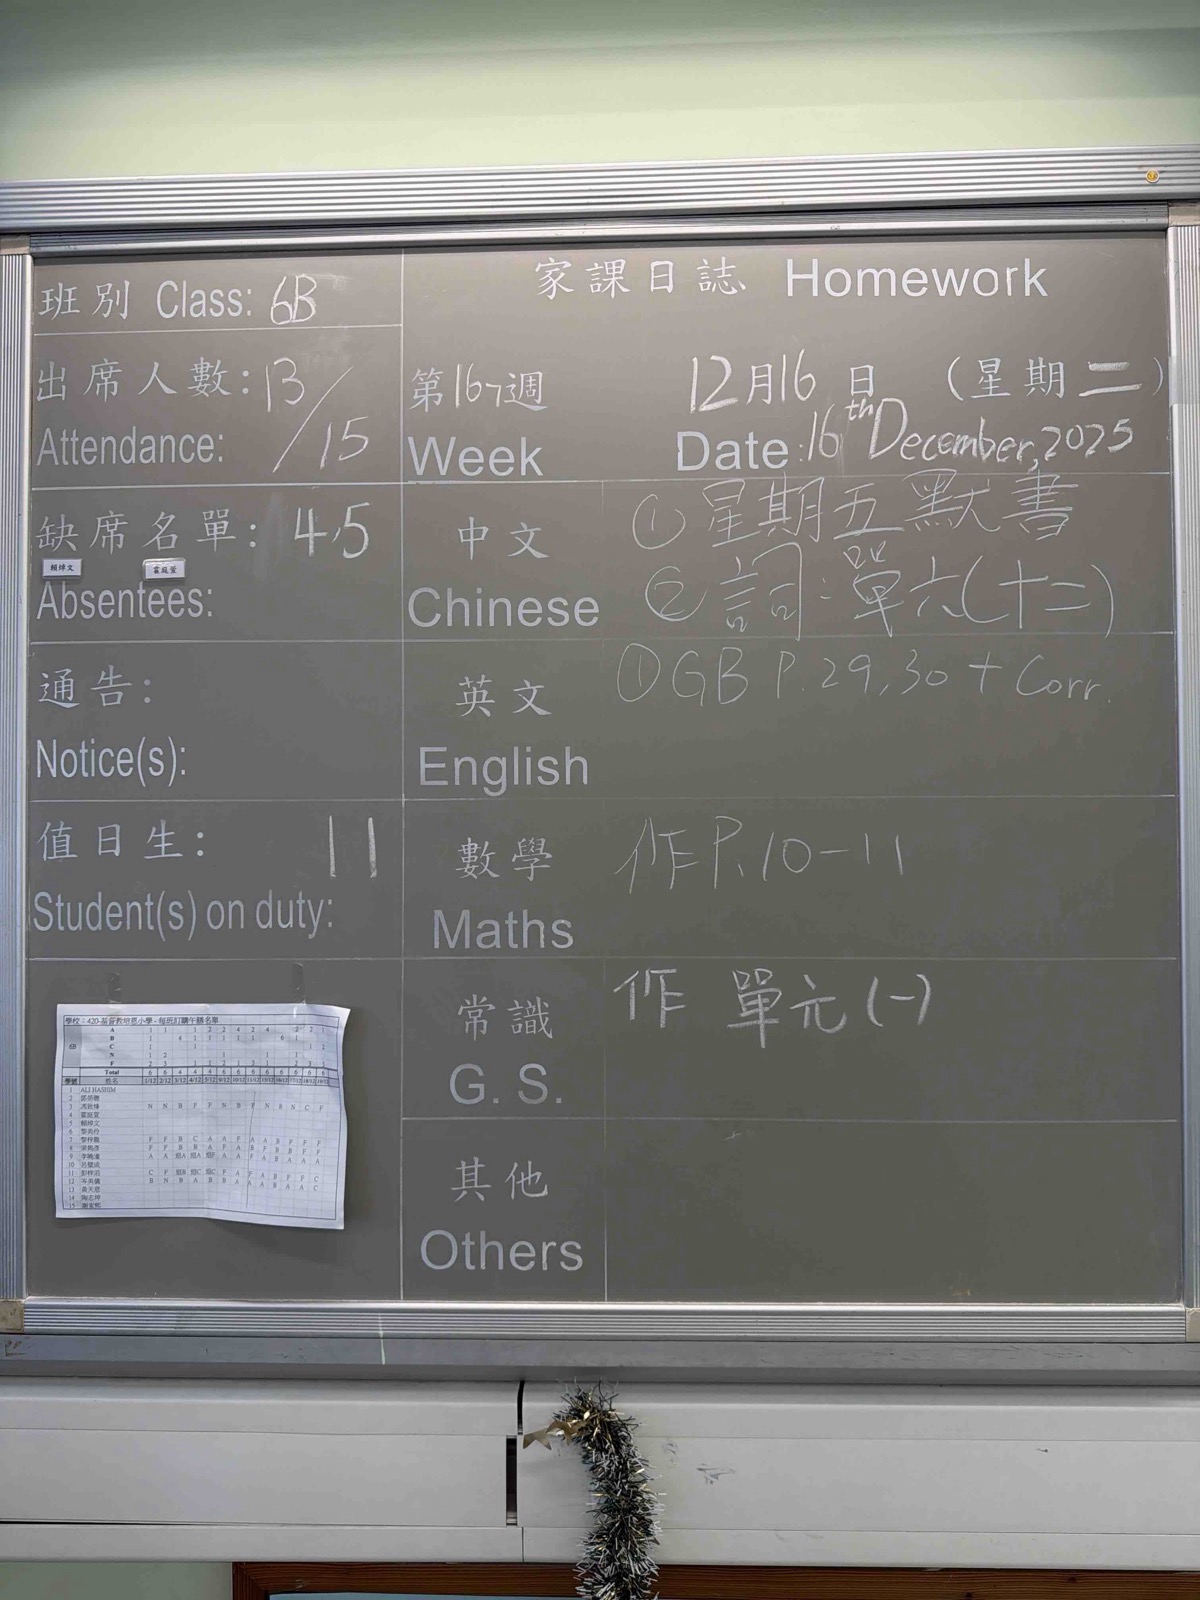 班別 Class: 6B
出席人數: 13/15
Attendance:
缺席名單: 4,5
賴焯文 霍庭萱
Absentees:
通告:
Notice(s):
值日生: 11
Student(s) on duty:
家課日誌 Homework
第16週 12月16日 (星期二)
Week Date: 16th December, 2025
中文 ①星期五默書
Chinese ②詞:單六(十二)
英文 ①GB P.29,30 + Corr.
English
數學 作P.10-11
Maths
常識 作 單元(一)
G. S.
其他
Others
學校:420-基督教培恩小學 - 每班訂購午膳名單
6B
A
B
C
N
F
Total
學號 姓名
1 ALI HASHIM